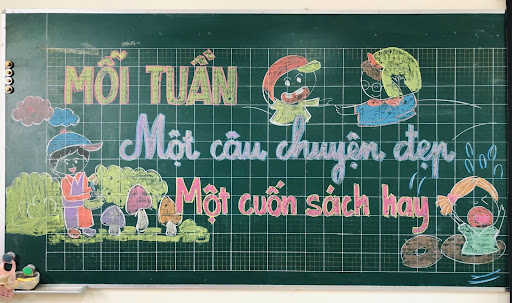 MỖI TUẦN
Một câu chuyện đẹp
Một cuốn sách hay